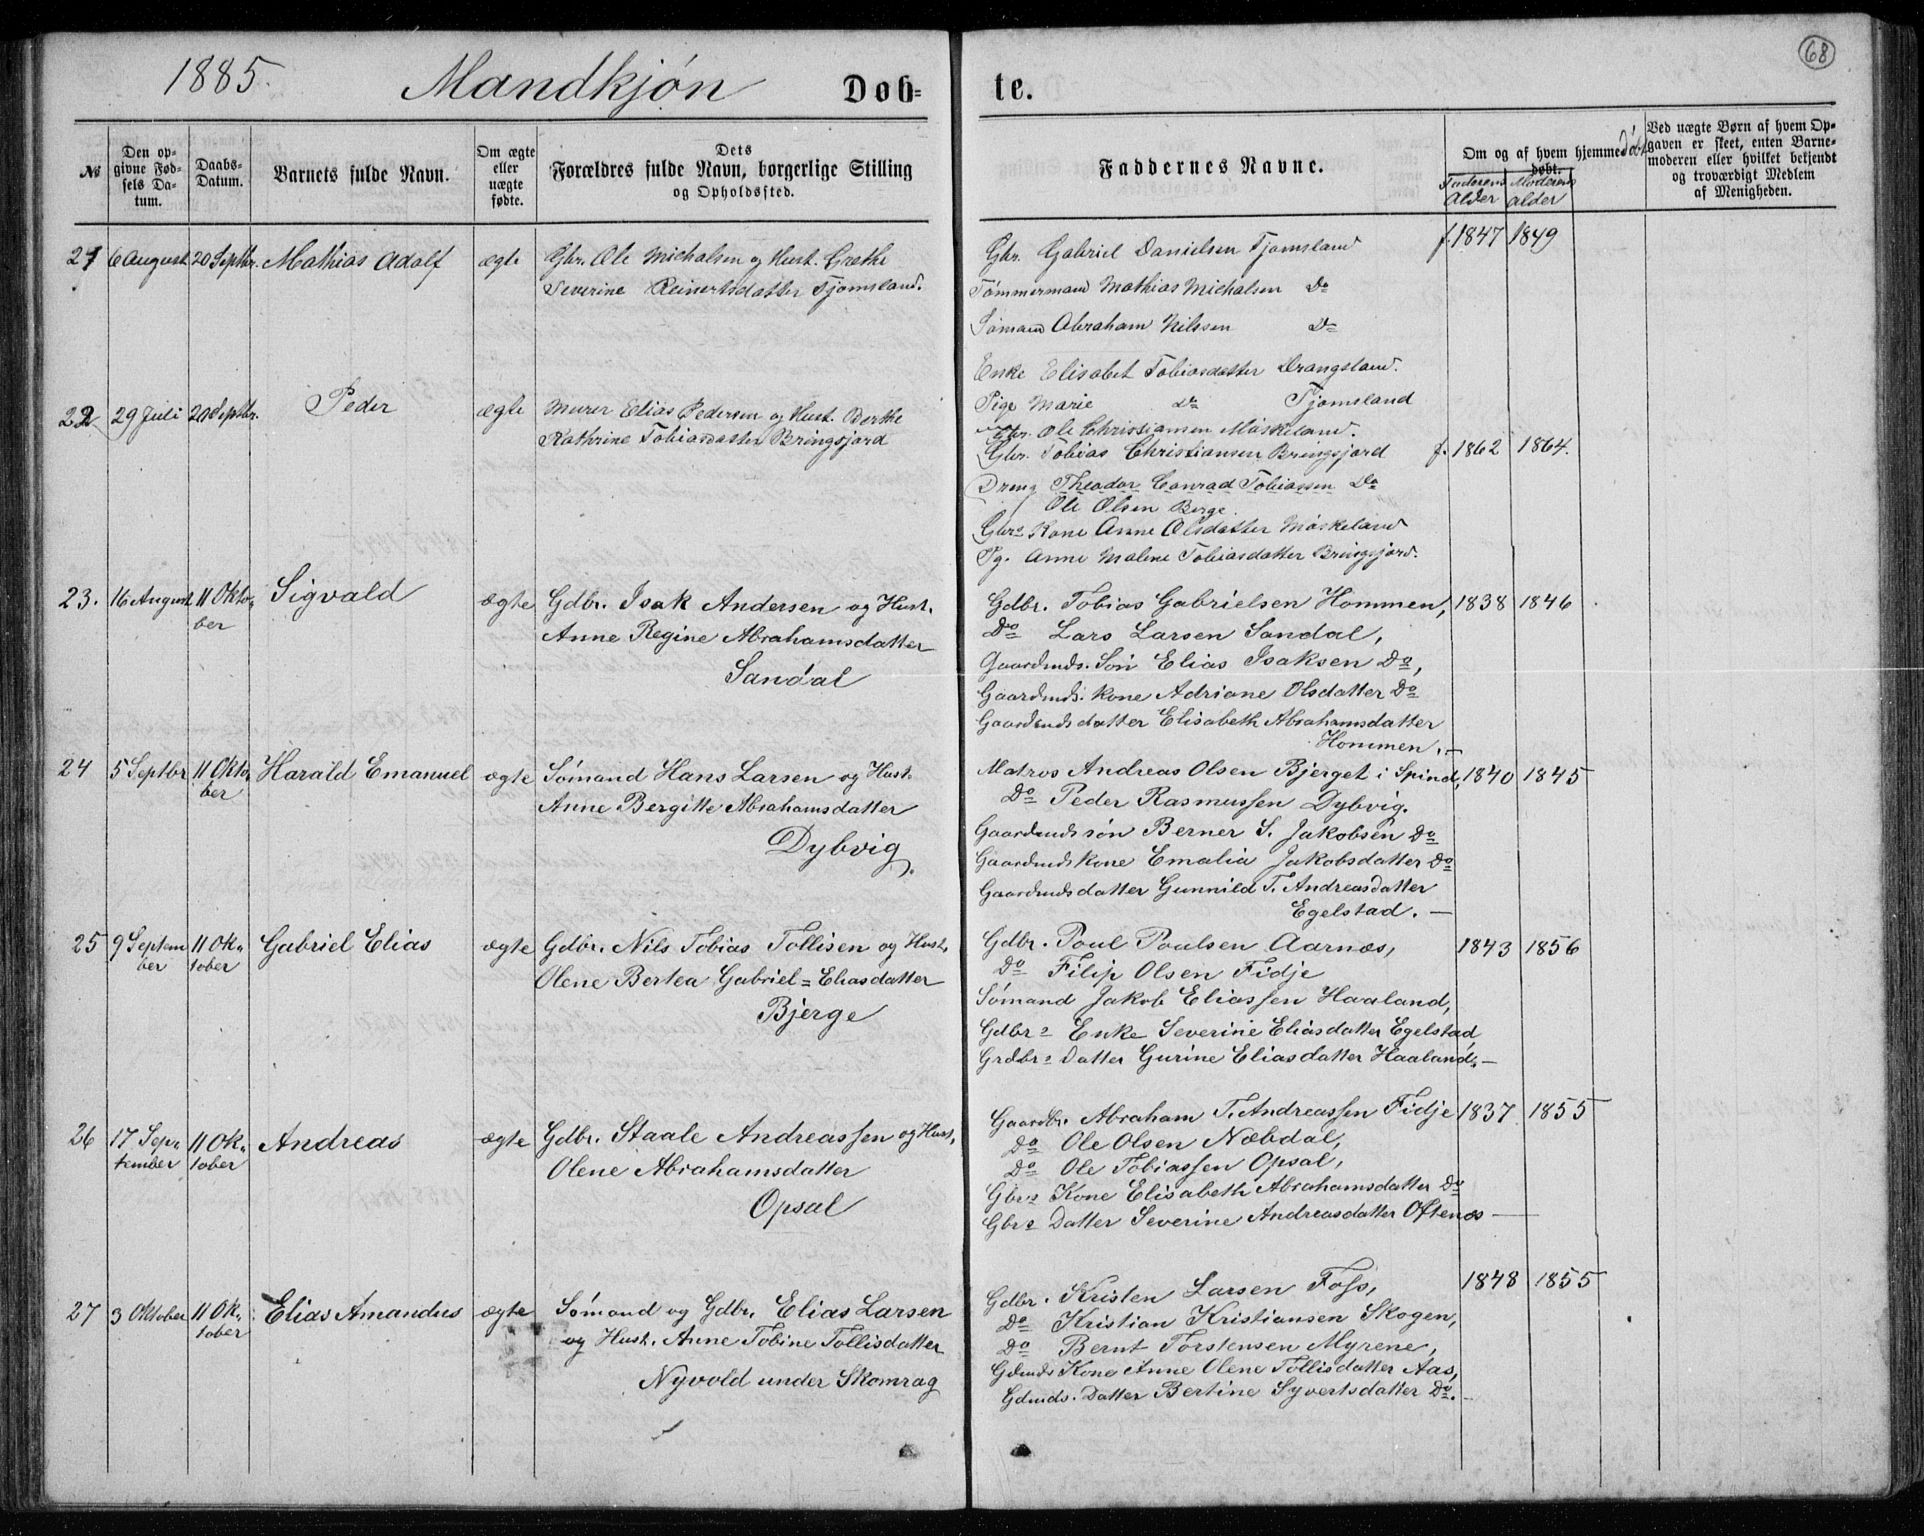 68
1885. Mandkjøn Døb= te.
№
Den op-
givne Fød-
sels Da-
tum.
Daabs-
Datum.
Barnets fulde Navn.
Om ægte
eller
uægte
fødte.
Dets
Forældres fulde Navn, borgerlige Stilling
og Opholdssted.
Faddernes Navne.
Om og af hvem hjemmedøbt.
døbt.
Faderens Alder
Moderens alder
Ved uægte Børn af hvem Op-
gaven er skeet, enten Barne-
moderen eller hvilket bekjendt
og troværdigt Medlem
af Menigheden.
21 6 August 20 Septbr. Mathias Adolf ægte Gbr. Ole Michalsen og Hust. Grethe
Severine Reinertsdatter Tjomsland.
Gbr. Gabriel Danielsen Tjomsland f. 1847 1849
Tømmermand Mathias Michalsen Do
Sømand Abraham Nilssen Do
Enke Elisabet Tobiasdatter Drangsland.
Pige Marie do Tjomsland
22 29 Juli 20 Septbr. Peder ægte Murer Elias Pedersen og Hust. Berthe
Kathrine Tobiasdatter Bringsjord
Gbr. Ole Christiansen Måskeland.
Gbr. Tobias Christiansen Bringsjord f. 1862 1864.
Dreng Theodor Conrad Tobiassen Do
Ole Olsen Berge.
Gbrs Kone Anne Olsdatter Måskeland
Pg. Anne Malene Tobiasdatter Bringsjord.
23. 16 August 11 Okto-
ber Sigvald ægte Gdbr. Isak Andersen og Hust.
Anne Regine Abrahamsdatter
Sandal
Gdbr. Tobias Gabrielsen Hommen, 1838 1846
Do Lars Larsen Sandal,
Gaardmds. Søn Elias Isaksen Do,
Gaardmds. kone Adriane Olsdatter Do
Gaardmdsdatter Elisabeth Abrahamsdatter
Hommen.—
24 5 Septbr 11 Okto-
ber Harald Emanuel ægte Sømand Hans Larsen og Hust.
Anne Bergitte Abrahamsdatter
Dybvig.
Matros Andreas Olsen Bjerget i Spind, 1840 1845
Do Peder Rasmussen Dybvig.
Gaardmdssøn Berner S. Jakobsen Do
Gaardmdskone Emalia Jakobsdatter Do
Gaardmdsdatter Gunnild T. Andreasdatter
Egelstad.—
25 9 Septem
ber 11 Ok-
tober Gabriel Elias ægte Gdbr. Nils Tobias Tollisen og Hust.
Olene Bertea Gabriel=Eliasdatter
Bjerge
Gdbr. Poul Poulsen Aarnæs, 1843 1856
Do Filip Olsen Fidje
Sømand Jakob Eliassen Haaland,
Gdbrs Enke Severine Eliasdatter Egelstad
Grdbrs Datter Gurine Eliasdatter Haaland.—
26 17 Sep-
tember 11 Ok-
tober Andreas ægte Gdbr. Staale Andreassen og Hust.
Olene Abrahamsdatter
Opsal
Gaardbr. Abraham T. Andreassen Fidje 1837 1855
Do Ole Olsen Næbdal,
Do Ole Tobiassen Opsal,
Gbrs Kone Elisabeth Abrahamsdatter Do
Gbrs Datter Severine Andreasdatter Oftenæs —
27 3 Oktober 11 Ok-
tober Elias Amandus ægte Sømand og Gdbr. Elias Larsen
og Hust. Anne Tobine Tollisdatter
Nyvold under Skomrag
Gdbr. Kristen Larsen Foss, 1848 1855
Do Kristian Kristiansen Skogen,
Do Bernt Torstensen Myrene,
Gdmds Kone Anne Olene Tollisdatter Aas,
Gdmds. Datter Bertine Syvertsdatter Do.